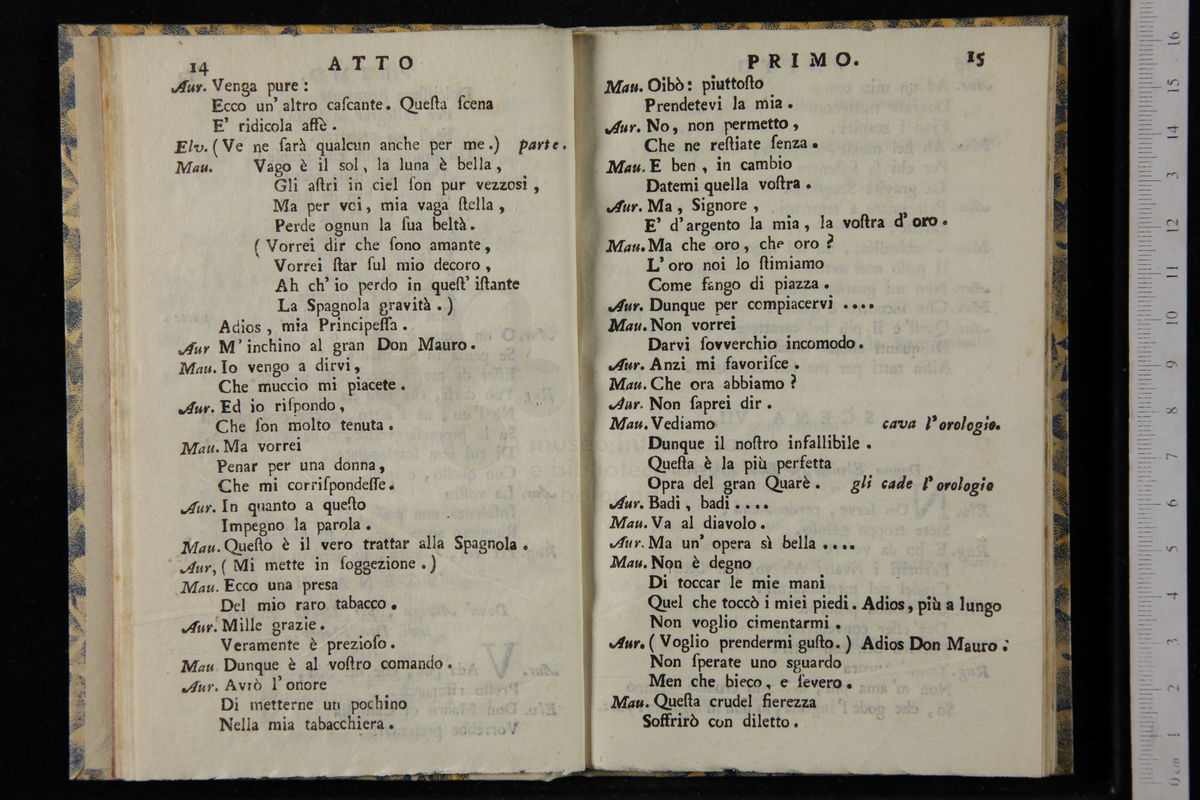 14 ATTO
Aur. Venga pure :
Ecco un' altro caſcante. Queſta ſcena
E' ridicola affè .
Elv. ( Ve ne ſarà qualcun anche per me .) parte .
Mau. Vago è il sol , la luna è bella ,
Gli aſtri in ciel ſon pur vezzosi ,
Ma per voi , mia vaga ſtella ,
Perde ognun la ſua beltà .
( Vorrei dir che ſono amante ,
Vorrei ſtar ſul mio decoro ,
Ah ch' io perdo in queſt' iſtante
La Spagnola gravità . )
Adios , mia Principeſſa .
Aur M' inchino al gran Don Mauro .
Mau. Io vengo a dirvi ,
Che muccio mi piacete .
Aur. Ed io riſpondo ,
Che ſon molto tenuta .
Mau. Ma vorrei
Penar per una donna ,
Che mi corriſpondeſſe .
Aur. In quanto a queſto
Impegno la parola .
Mau. Queſto è il vero trattar alla Spagnola .
Aur, ( Mi mette in ſoggezione . )
Mau. Ecco una presa
Del mio raro tabacco .
Aur. Mille grazie .
Veramente è prezioſo .
Mau Dunque è al voſtro comando .
Aur. Avrò l' onore
Di metterne un pochino
Nella mia tabacchiera .
PRIMO. 15
Mau. Oibò : piuttoſto
Prendetevi la mia .
Aur. No , non permetto ,
Che ne reſtiate ſenza .
Mau. E ben , in cambio
Datemi quella voſtra .
Aur. Ma , Signore ,
E' d' argento la mia , la voſtra d' oro .
Mau. Ma che oro , che oro ?
L' oro noi lo ſtimiamo
Come fango di piazza .
Aur. Dunque per compiacervi ....
Mau. Non vorrei
Darvi ſovverchio incomodo .
Aur. Anzi mi favoriſce .
Mau. Che ora abbiamo ?
Aur. Non ſaprei dir .
Mau. Vediamo cava l' orologio.
Dunque il noſtro infallibile .
Queſta è la più perfetta
Opra del gran Quarè . gli cade l' orologio
Aur. Badi , badi ....
Mau. Va al diavolo .
Aur. Ma un' opera sì bella ....
Mau. Non è degno
Di toccar le mie mani
Quel che toccò i miei piedi . Adios, più a lungo
Non voglio cimentarmi .
Aur. ( Voglio prendermi guſto . ) Adios Don Mauro :
Non ſperate uno sguardo
Men che bieco , e ſevero .
Mau. Queſta crudel fierezza
Soffrirò con diletto .